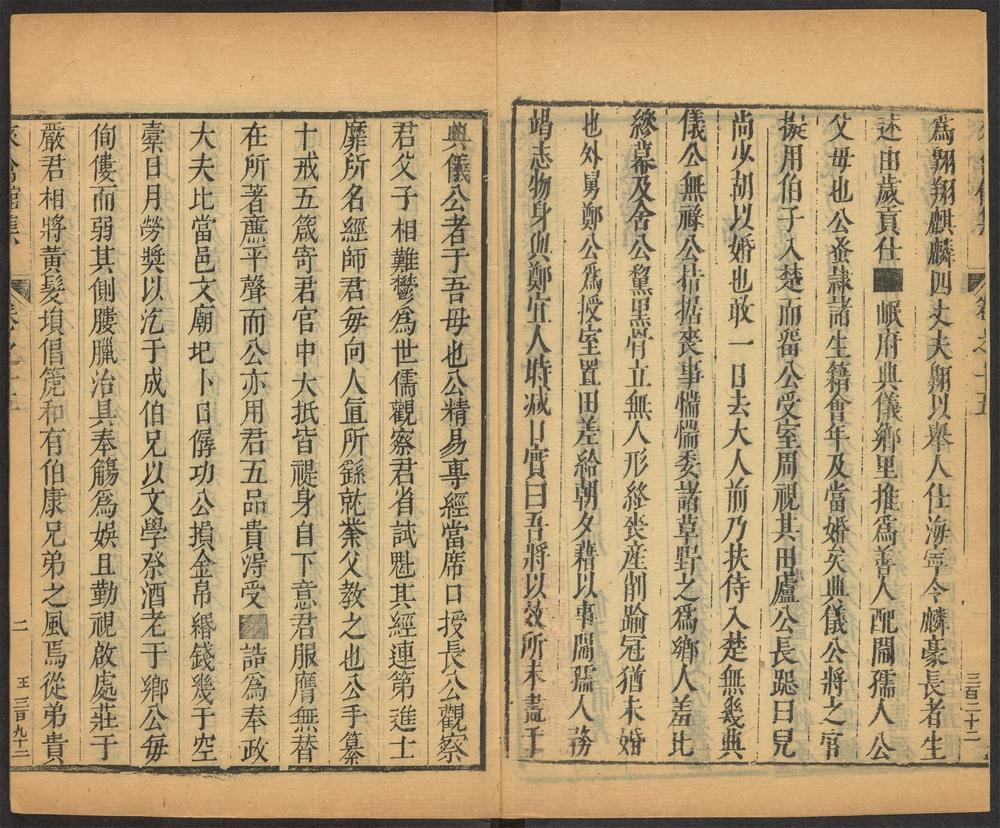 爲翔翔麒麟四丈夫翔以舉人仕海寧令麟豪長者生
述由歲貢仕 岷府典儀鄉里推爲善人配閻孺人公
父母也公蚤隷諸生籍會年及當婚矣典儀公將之官
擬用伯子入楚而畱公受室周視其田廬公長跽曰兒
尚少胡以婚也敢一日去大人前乃扶侍入楚無幾典
儀公無祿公拮据喪事惴惴委諸草野之爲鄉人羞比
繆幕及舍公黧黑骨立無人形終喪產削踰冠猶未婚
也外舅鄭公爲授室置田差給朝夕藉以事閻孺人務
竭志物身與鄭宜人時减口實曰吾將以效所未盡于
三百二十二
典儀公者于吾母也公精易專經當席口授長公觀察
君父子相難鬱爲世儒觀察君省試魁其經連第進士
靡所名經師君每向人亶所繇就業父教之也公手纂
十戒五箴寄君官中大抵皆禔身自下意君服膺無替
在所著廉平聲而公亦用君五品貴得受 誥爲奉政
大夫比當邑文廟圯卜日僝功公損金帛緡錢幾于空
橐日月勞奬以汔于成伯兄以文學祭酒老于鄉公每
佝僂而弱其側膢臘冶具奉觴爲娛且勤視啟處莊于
嚴君相將黃髮塤倡箎和有伯康兄弟之風焉從弟貴
二
王 三百九十二